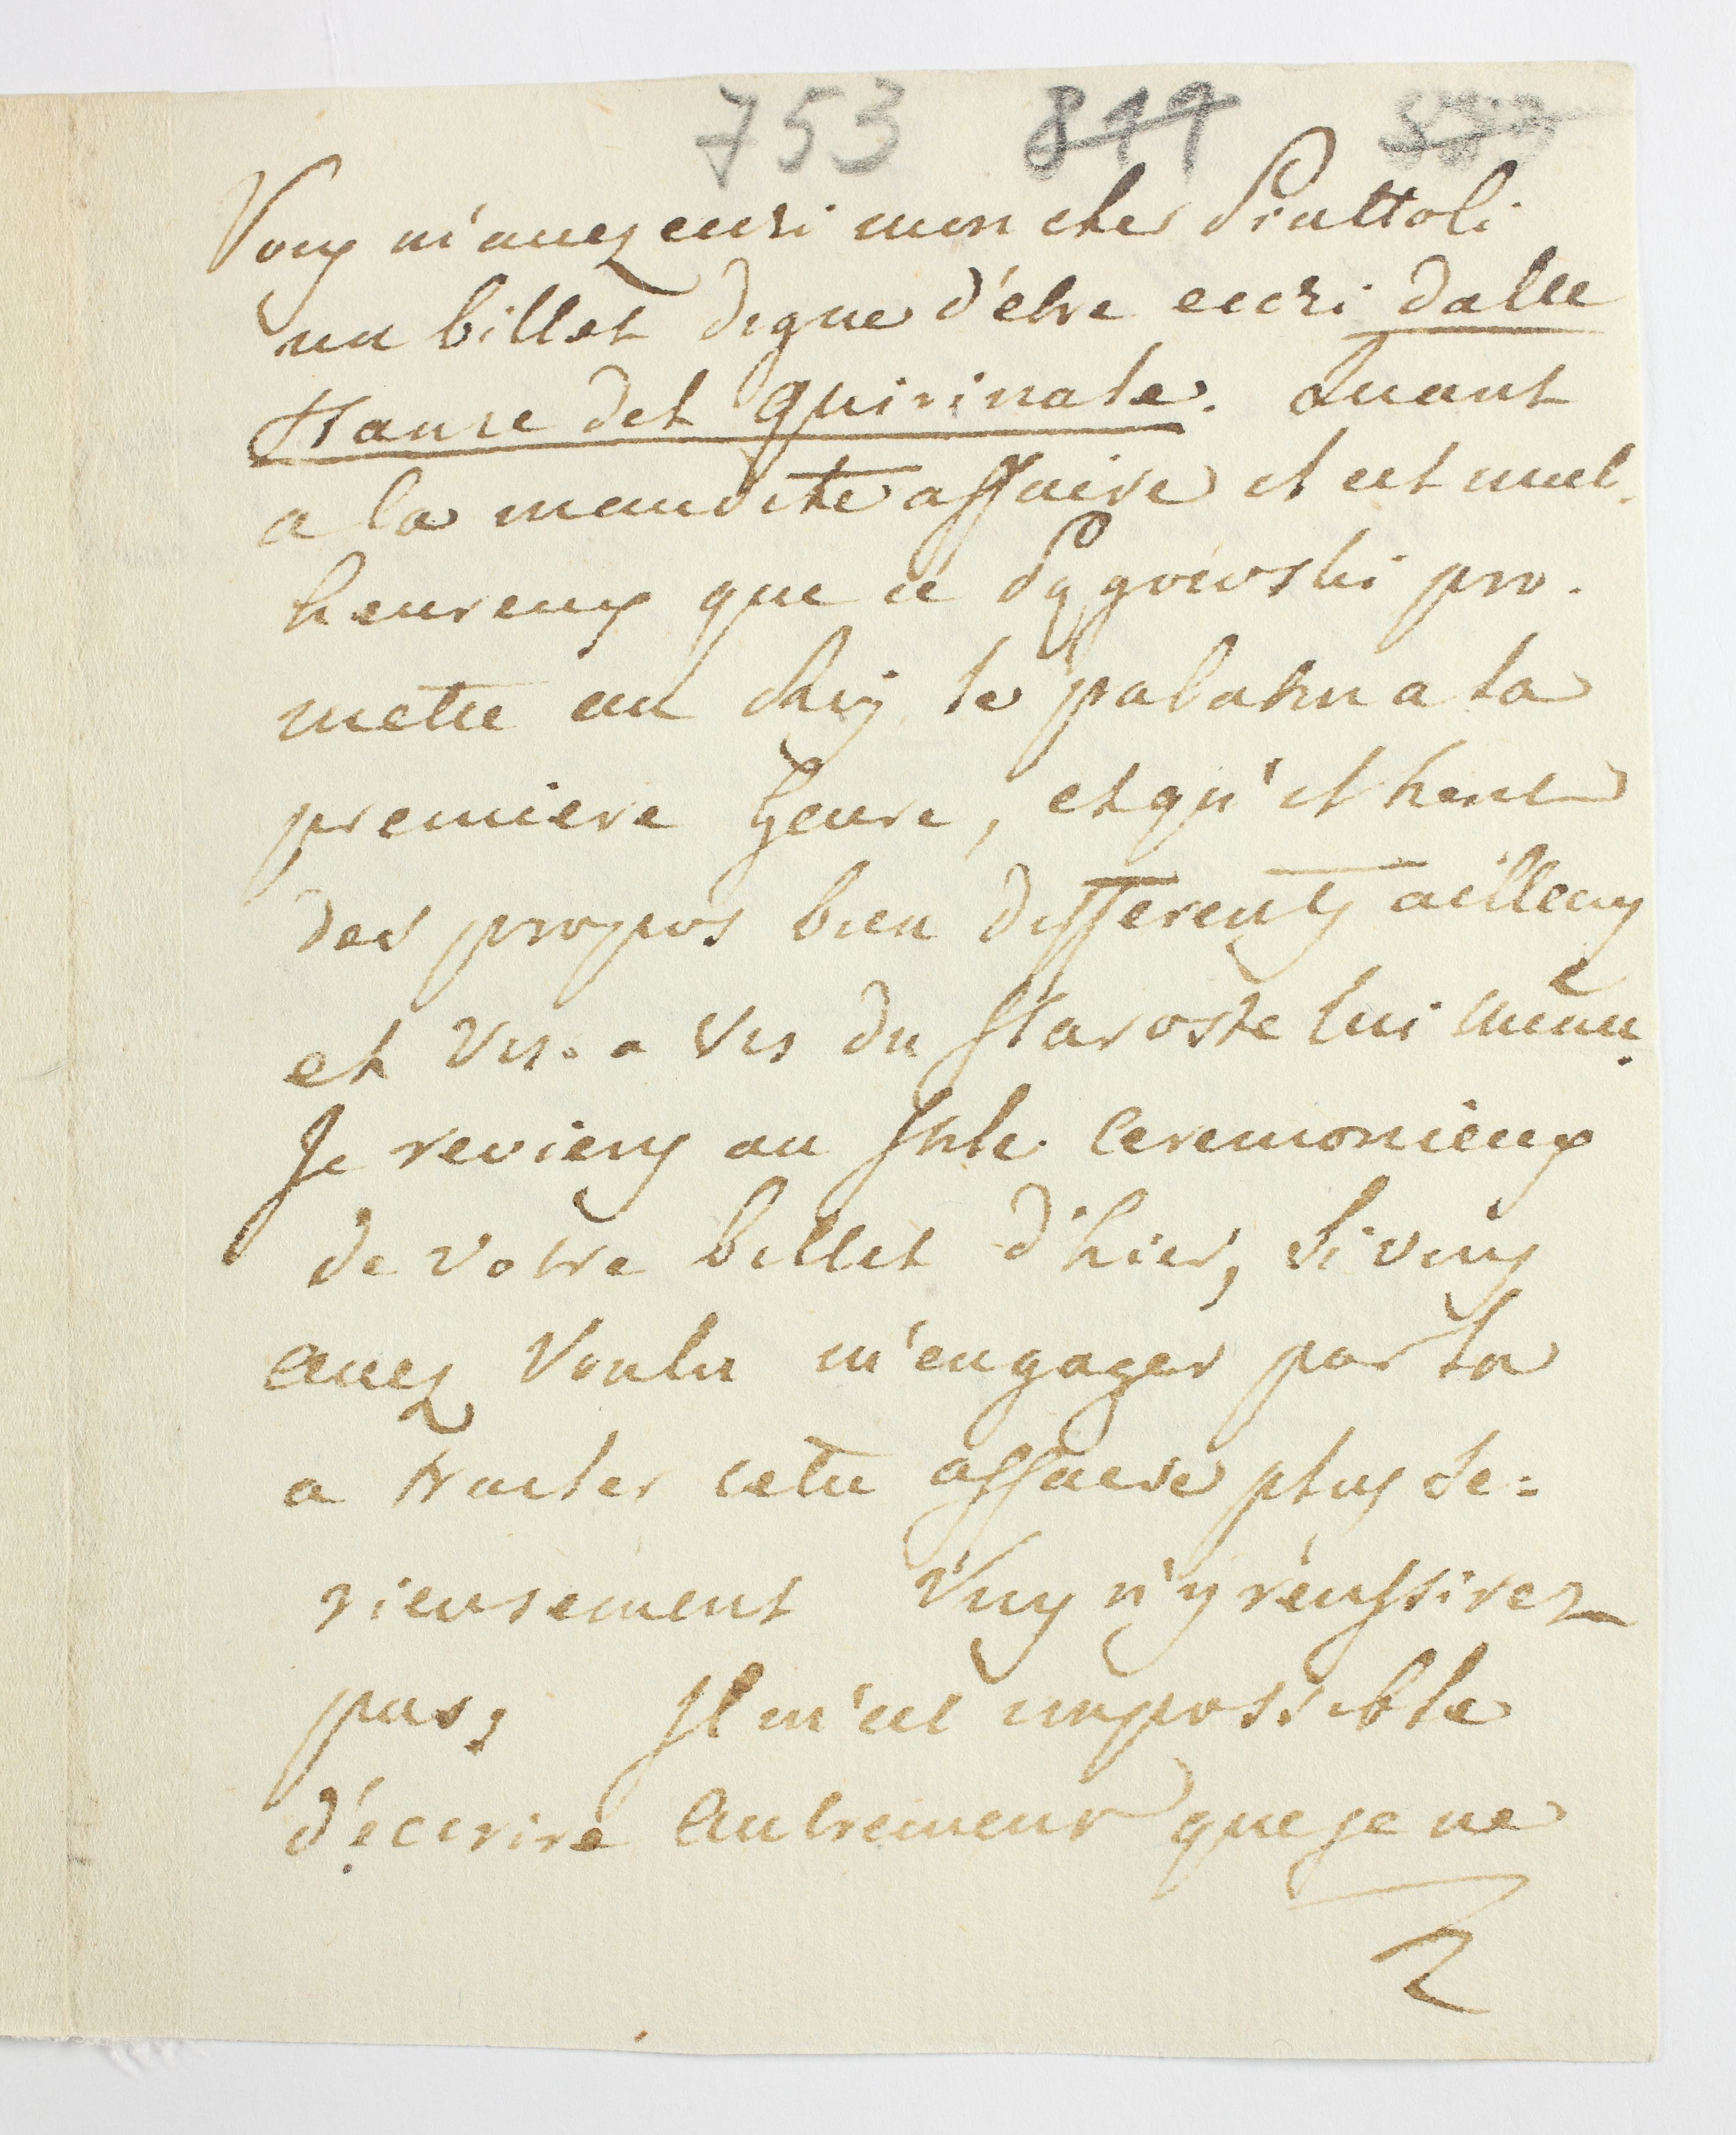 753 844
Vous m'avez ecri mon cher Piattoli
un billet digne d'etre ecri dalle
stanze del Quirinale. Quant
a la maudite affaire il est mal-
heureux que ce Pygowski pro-
mette au Roy le palatin a la
premiere heure, et qu'il tient
des propos bien differents ailleurs
et vis-a vis du Staroste lui même.
Je reviens au stile ceremonieux
de votre billet d'hier, si vous
avez voulu m'engager par la
a traiter cette affaire plus se=
rieusement vous n'y reussirez
pas, Il m'est impossible
d'ecrire autrement que je ne